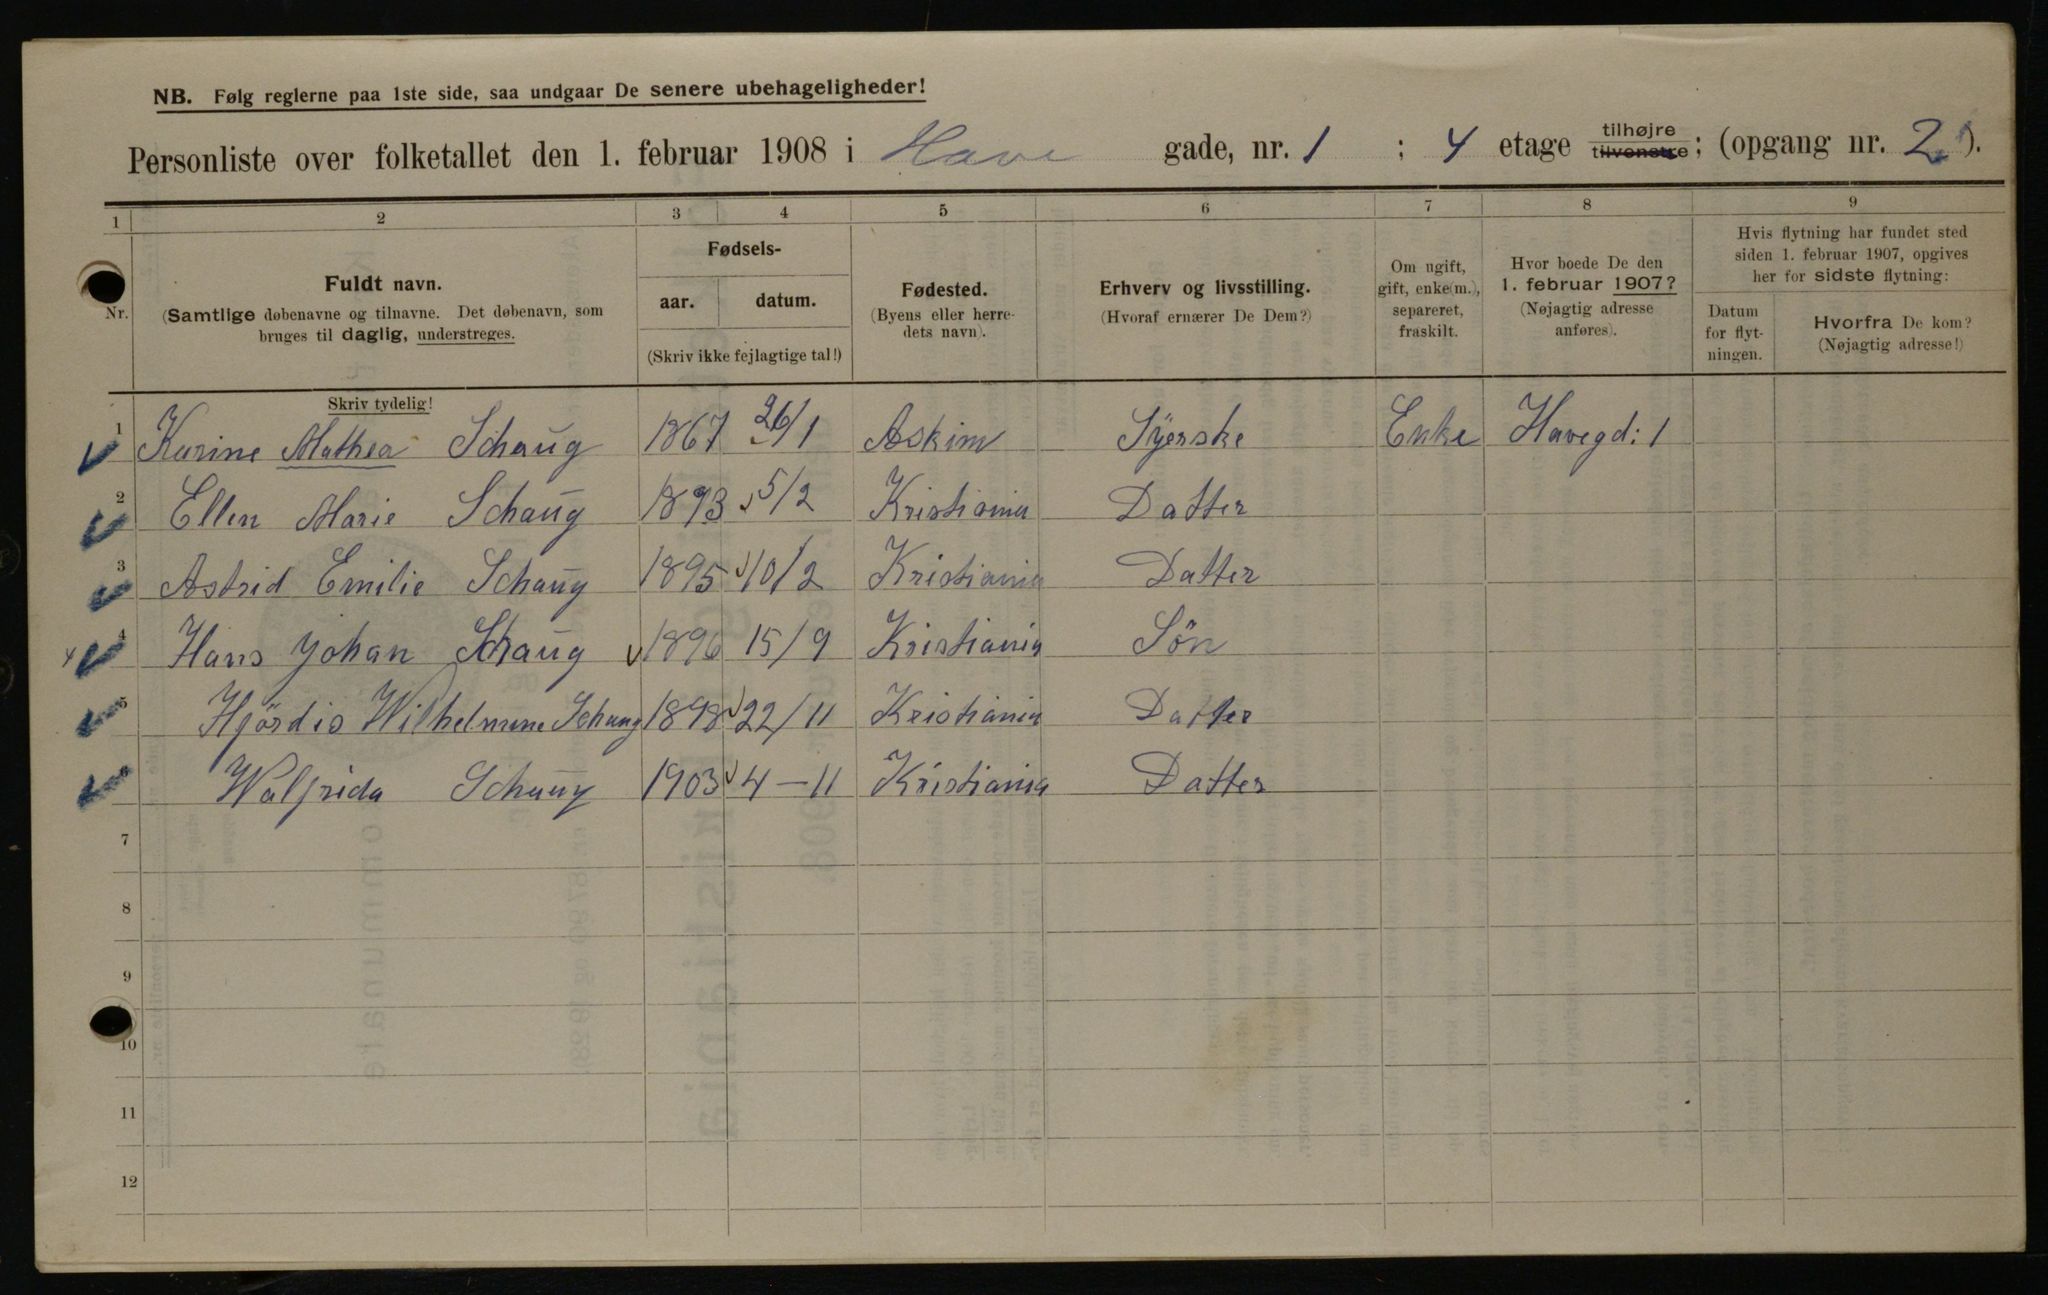 NB. Følg reglerne paa 1ste side, saa undgaar De senere ubehageligheder!
Personliste over folketallet den 1. februar 1908 i Have gade, nr. 1 ; 4 etage tilhøjre tilvenstre ; (opgang nr. 2 ).
1 2 3 4 5 6 7 8 9
Nr.
Fuldt navn.
(Samtlige døbenavne og tilnavne. Det døbenavn, som
bruges til daglig, understreges.
Skriv tydelig!
Fødsels-
aar. datum.
(Skriv ikke fejlagtige tal!)
Fødested.
(Byens eller herre-
dets navn).
Erhverv og livsstilling.
(Hvoraf ernærer De Dem?)
Om ugift,
gift, enke(m.),
separeret,
fraskilt.
Hvor boede De den
1. februar 1907?
(Nøjagtig adresse
anføres).
Hvis flytning har fundet sted
siden 1. februar 1907, opgives
her for sidste flytning:
Datum
for flyt-
ningen.
Hvorfra De kom?
(Nøjagtig adresse!)
1 Karine Mathea Schaug 1867 26/1 Askim Syerske Enke Havegd: 1
2 Ellen Marie Schaug 1893 5/2 Kristiania Datter
3 Astrid Emilie Schaug 1895 10/2 Kristiania Datter
4 Hans Johan Schaug 1896 15/9 Kristiania Sön
5 Hjördis Wilhelmine Schaug 1898 22/11 Kristiania Datter
6 Walfrida Schaug 1903 4-11 Kristiania Datter
7
8
9
10
11
12